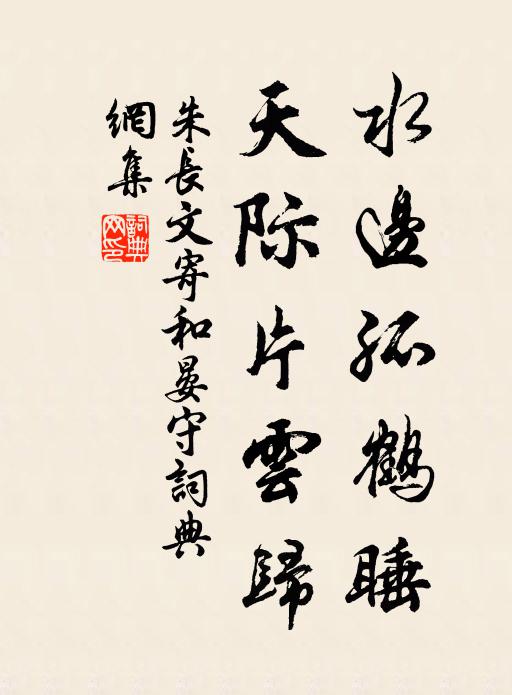 水邊孤鶴睡
天际片雲歸
朱長文寄和晏守詞典
網集
詞典網印